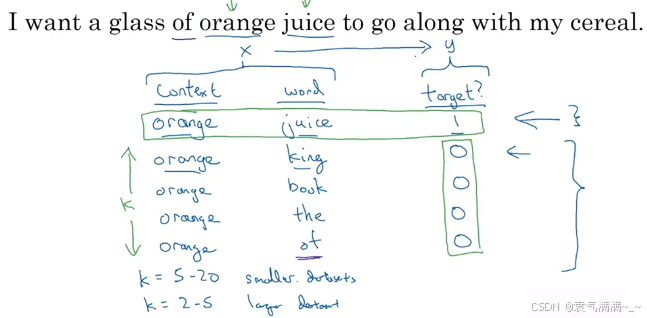 I want a glass of orange juice to go along with my cereal.
x → y
context word target?
orange juice 1
orange king 0
orange book 0
orange the 0
orange of 0
k
k = 5-20 smaller datasets
k = 2-5 larger dataset
CSDN @袁气满满~_~